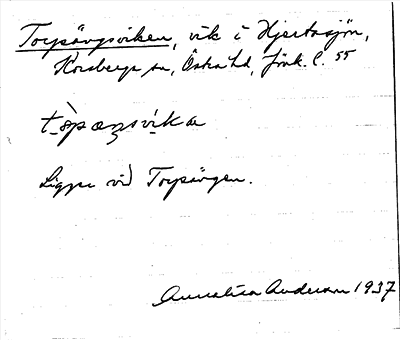 Torpängsviken, vik i Hjertasjön,
Korsberga sn, Östra hd, Jönk. l. 55
tòpæŋsvika
Ligger vid Torpängen.
Annalisa Anderson 1937